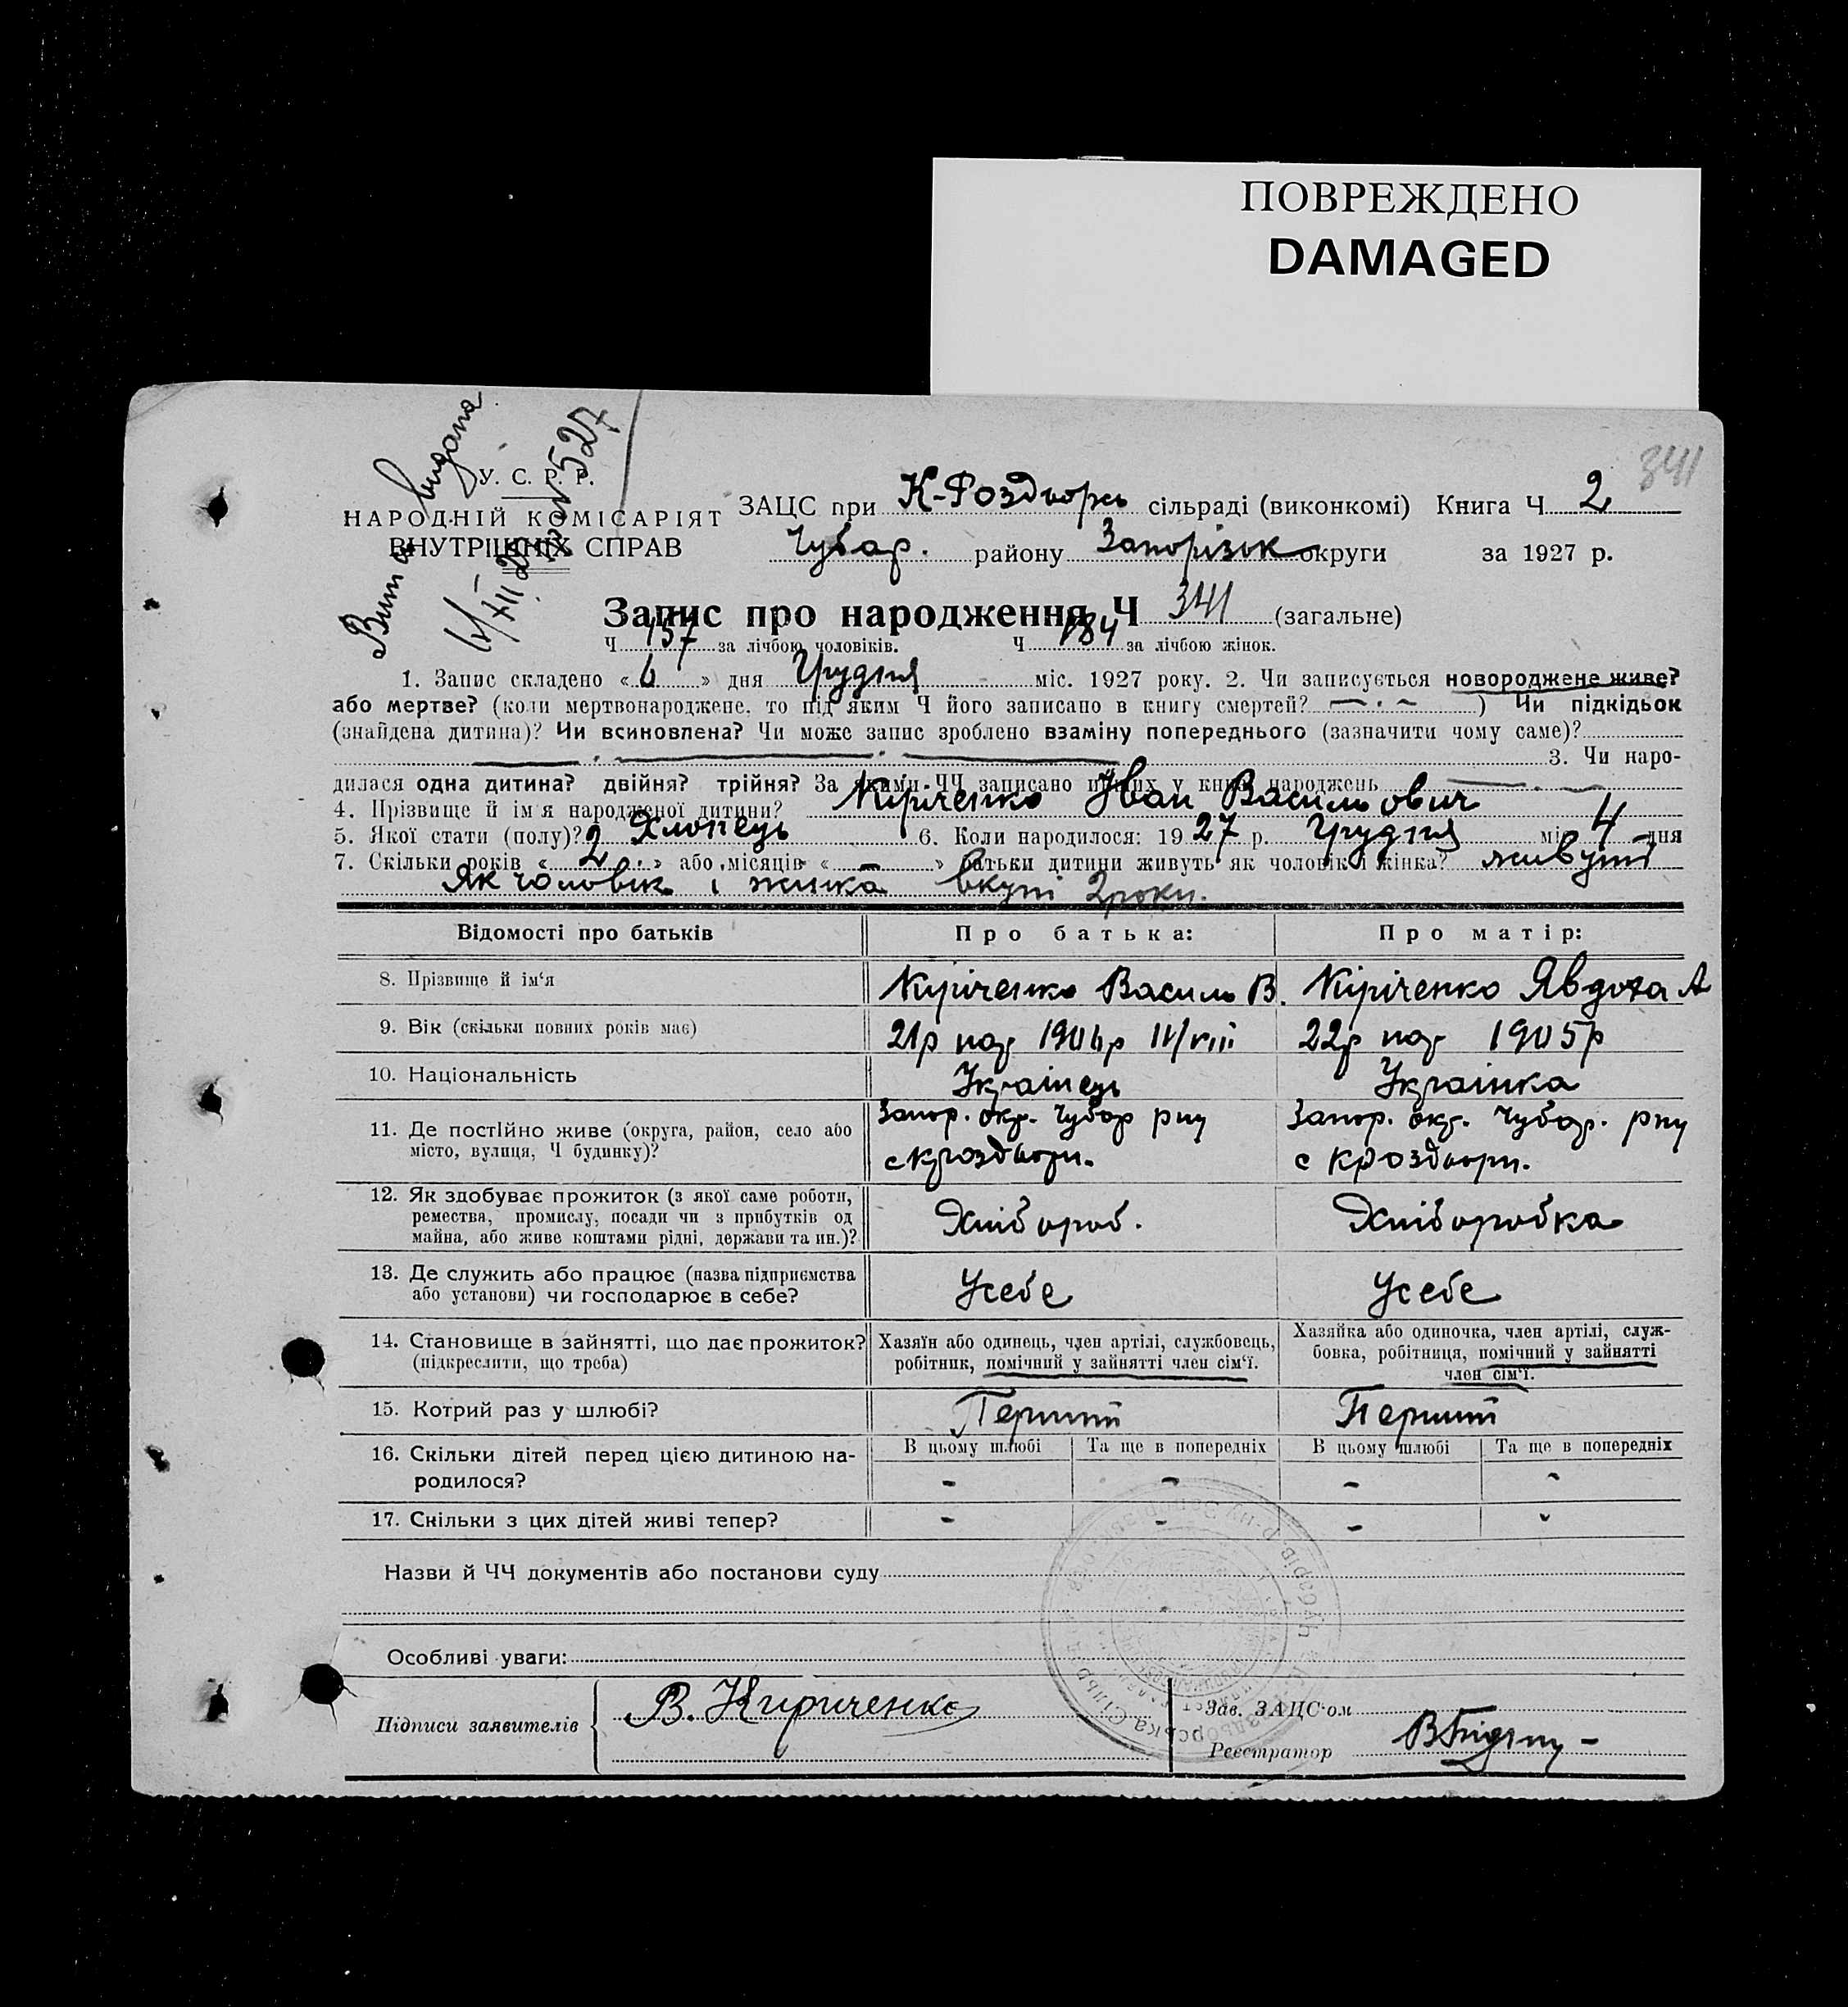 ПОВРЕЖДЕНО
DAMAGED
341
Витяг видано
6/XII 27 527
У. С. Р. Р.
НАРОДНІЙ КОМІСАРІЯТ
ВНУТРІШНІХ СПРАВ
ЗАЦС при К-Роздорсь сільраді (виконкомі) Книга Ч 2
Чубар. району Запорізьк округи за 1927 р.
Запис про народження Ч 341 (загальне)
Ч 157 за лічбою чоловіків. Ч 184 за лічбою жінок.
1. Запис складено « 6 » дня Грудня міс. 1927 року. 2. Чи записується новороджене живе?
або мертве? (коли мертвонароджене, то під яким Ч його записано в книгу смертей? — . — ) Чи підкідьок
(знайдена дитина)? Чи всиновлена? Чи може запис зроблено взаміну попереднього (зазначити чому саме)?
3. Чи наро-
дилася одна дитина? двійня? трійня? За якими ЧЧ записано інших у книзі народжень — . —
4. Прізвище й ім'я народженої дитини? Кіріченко Іван Васильович
5. Якої стати (полу)? Хлопець 6. Коли народилося: 1927 р. Грудня міс 4 дня
7. Скільки років « 2 р. » або місяців « — » батьки дитини живуть як чоловік і жінка? живуть
Як чоловік і жінка вкупі 2 роки.
Відомості про батьків
Про батька:
Про матір:
8. Прізвище й ім'я
Кіріченко Василь В.
Кіріченко Явдоха А
9. Вік (скільки повних років має)
21р нар 1906р IV/VIII
22р нар 1905р
10. Національність
Українець
Українка
11. Де постійно живе (округа, район, село або
місто, вулиця, Ч будинку)?
Запор. окр. Чубар рну
с Кроздори.
Запор. окр. Чубар. рну
с Кроздори.
12. Як здобуває прожиток (з якої саме роботи,
ремества, промислу, посади чи з прибутків од
майна, або живе коштами рідні, держави та ин.)?
Хлібороб.
Хліборобка
13. Де служить або працює (назва підприємства
або установи) чи господарює в себе?
Усебе
Усебе
14. Становище в зайнятті, що дає прожиток?
(підкреслити, що треба)
Хазяїн або одинець, член артілі, службовець,
робітник, помічний у зайнятті член сім'ї.
Хазяйка або одиночка, член артілі, служ-
бовка, робітниця, помічний у зайнятті
член сім'ї.
15. Котрий раз у шлюбі?
Перший
Перший
16. Скільки дітей перед цією дитиною на-
родилося?
В цьому шлюбі
Та ще в попередніх
В цьому шлюбі
Та ще в попередніх
- - - -
17. Скільки з цих дітей живі тепер?
- - - -
Назви й ЧЧ документів або постанови суду
Особливі уваги:
Підписи заявителів
В. Кириченко
Зав. ЗАЦС'ом
Реєстратор